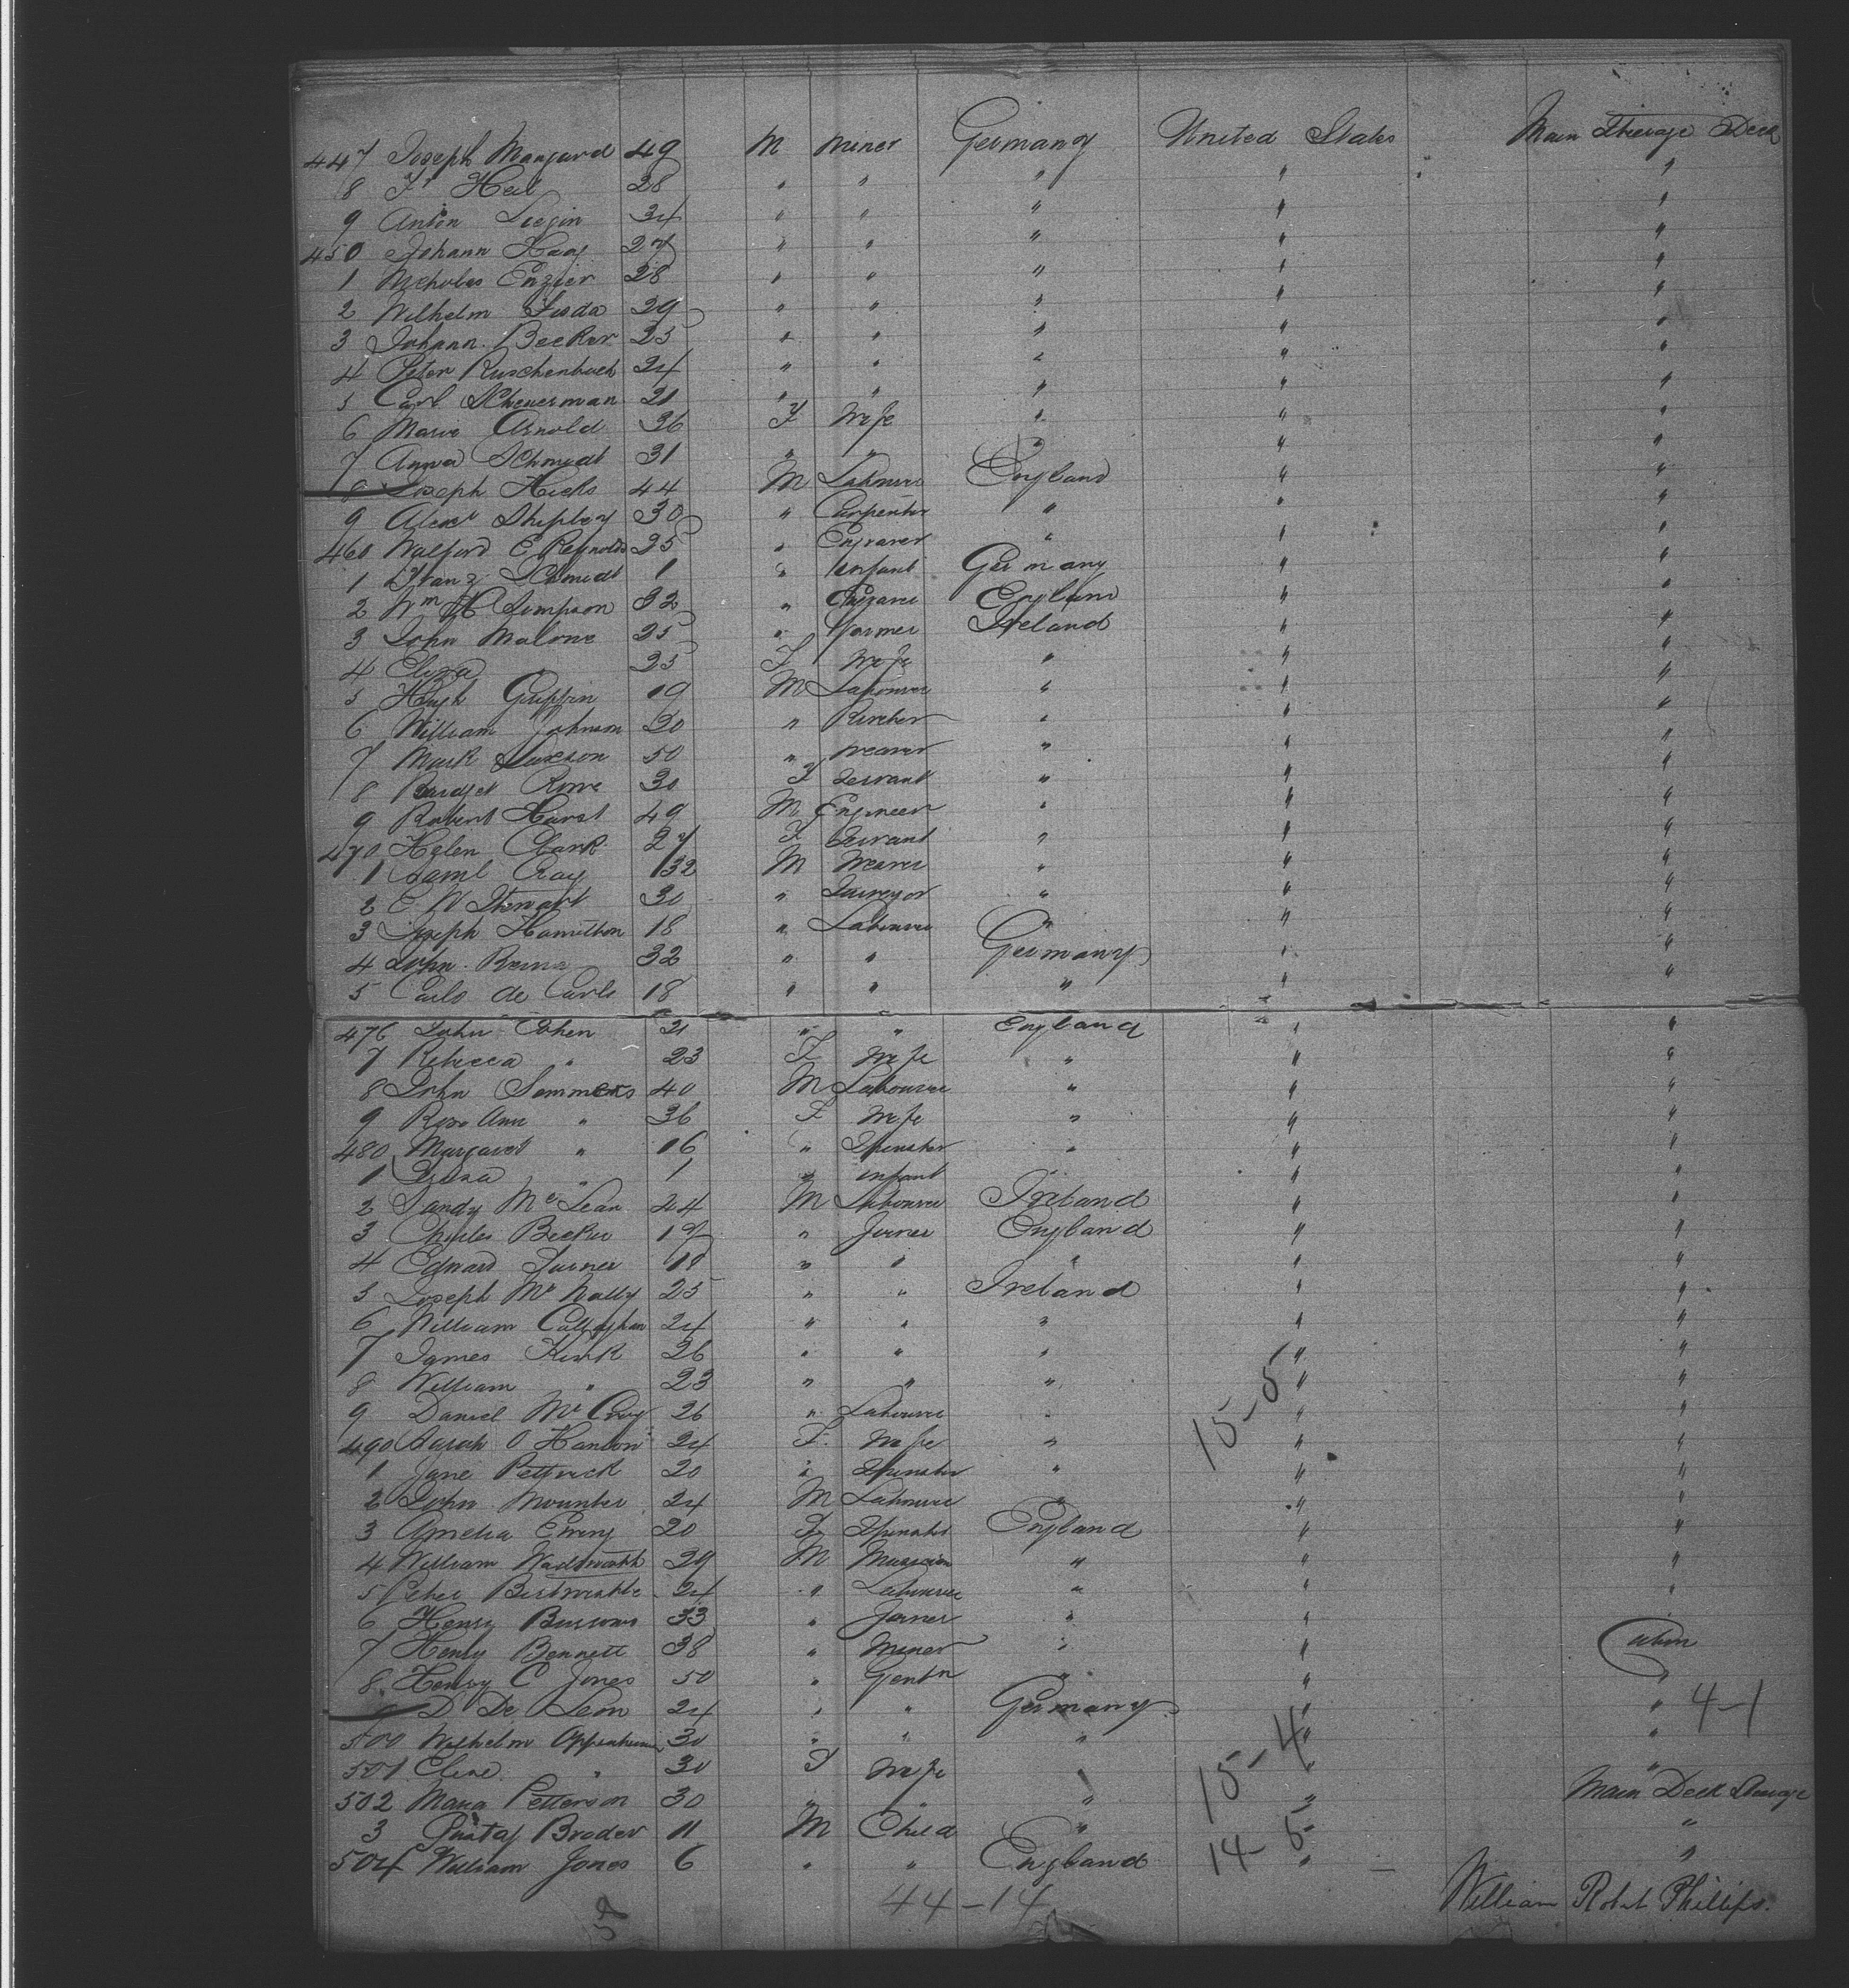 447 Joseph Mangard 49 M Miner Germany United States Main Steerage Deck
8 Fr Heil 28 " " " " "
9 Anton 34 " " " " "
450 Johann Haag 27 " " " " "
1 Nicholas 28 " " " " "
2 Wilhelm 29 " " " " "
3 Johann Becker 25 " " " " "
4 Peter Ruschenbach 24 " " " " "
5 Carl Scheuerman 21 " " " " "
6 Arnold 36 F Wife " " "
7 Anna Schmidt 31 " " " " "
8 Joseph Hicks 44 M Labourer England " "
9 Alexr Shipley 30 " Carpenter " " "
460 Walford E Reynolds 25 " Engraver " " "
1 Franz Schmidt 1 " Infant Germany " "
2 Wm H Simpson 32 " England " "
3 John Malone 25 " Farmer Ireland " "
4 Eliza 25 F Wife " " "
5 Hugh Griffin 19 M Labourer " " "
6 William Johnson 20 " " " "
7 Mark 50 " Weaver " " "
8 Bridget Rowe 30 F Servant " " "
9 Robert Hurst 49 M Engineer " " "
470 Helen Clark 27 F Servant " " "
1 Saml Cray 32 M Weaver " " "
2 C W Stewart 30 " Surveyor " " "
3 Joseph Hamilton 18 " Labourer " " "
4 John 32 " " Germany " "
5 Carlo de Carlo 18 " " " " "
476 John Cohen 21 " " England " "
7 Rebecca " 23 F Wife " " "
8 John Sommers 40 M Labourer " " "
9 Rose Ann " 36 F Wife " " "
480 Margaret " 16 " Spinster " " "
1 " 1 " infant " " "
2 Sandy McLean 24 M Labourer Ireland " "
3 Charles Becker 19 " Joiner England " "
4 Edward Turner 19 " " " " "
5 Joseph McNally 25 " " Ireland " "
6 William Callaghan 24 " " " " "
7 James Kirk 26 " " " " "
8 William " 23 " " " " "
9 Daniel McCroy 26 " Labourer " " "
490 Sarah O Hanlon 24 F. Wife " " "
15-5
1 Jane Pettrick 20 " Spinster " " "
2 John Mounter 24 M Labourer " " "
3 Amelia Ewing 20 F Spinster England " "
4 William Wadsworth 29 M Musician " " "
5 Peter Birtwistle 24 " Labourer " " "
6 Henry Burrows 33 " Joiner " " "
7 Henry Bennett 38 " Miner " "
8 Henry C Jones 50 " Gentn " " "
9 D De Leon 24 " " Germany " " 4-1
500 Wilhelm Oppenheim 30 " " " " "
501 " 30 F Wife " " "
15-4
502 Maria Petterson 30 " " " " Main Deck Steerage
3 Gustaf Broder 11 M Child " " "
504 William Jones 6 " " England " "
14-5
44-14
William Robt Phillips.